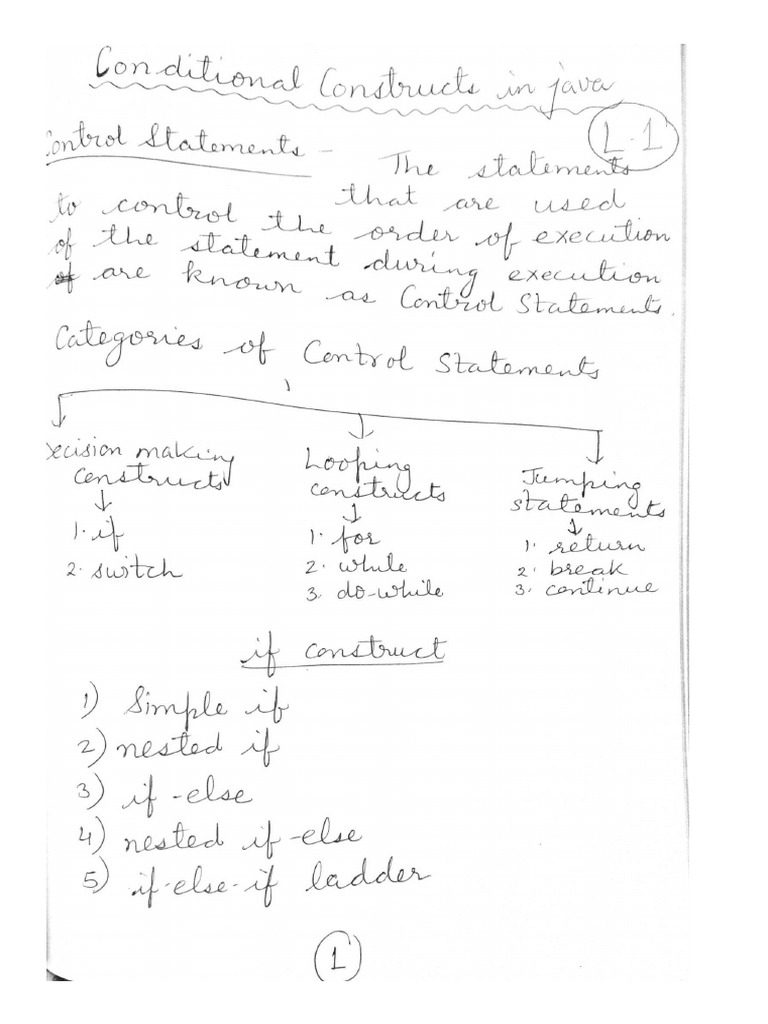 Conditional Constructs in java
L-1
Control Statements - The statements
that are used
to control the order of execution
of the statement during execution
are known as Control Statements.
Categories of Control Statements
Decision making constructs
1. if
2. switch
Looping constructs
1. for
2. while
3. do-while
Jumping statements
1. return
2. break
3. continue
if construct
1) Simple if
2) nested if
3) if-else
4) nested if-else
5) if-else-if ladder
1